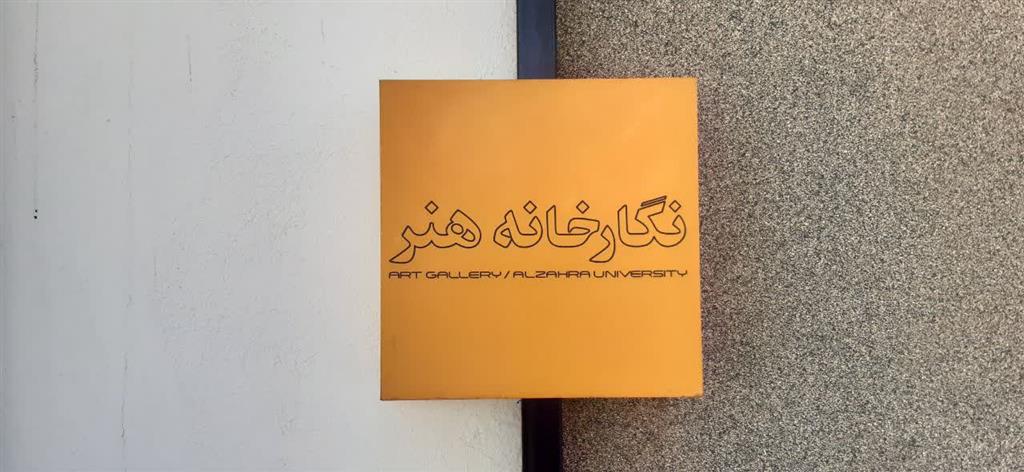 نگارخانه هنر
ART GALLERY / ALZAHRA UNIVERSITY